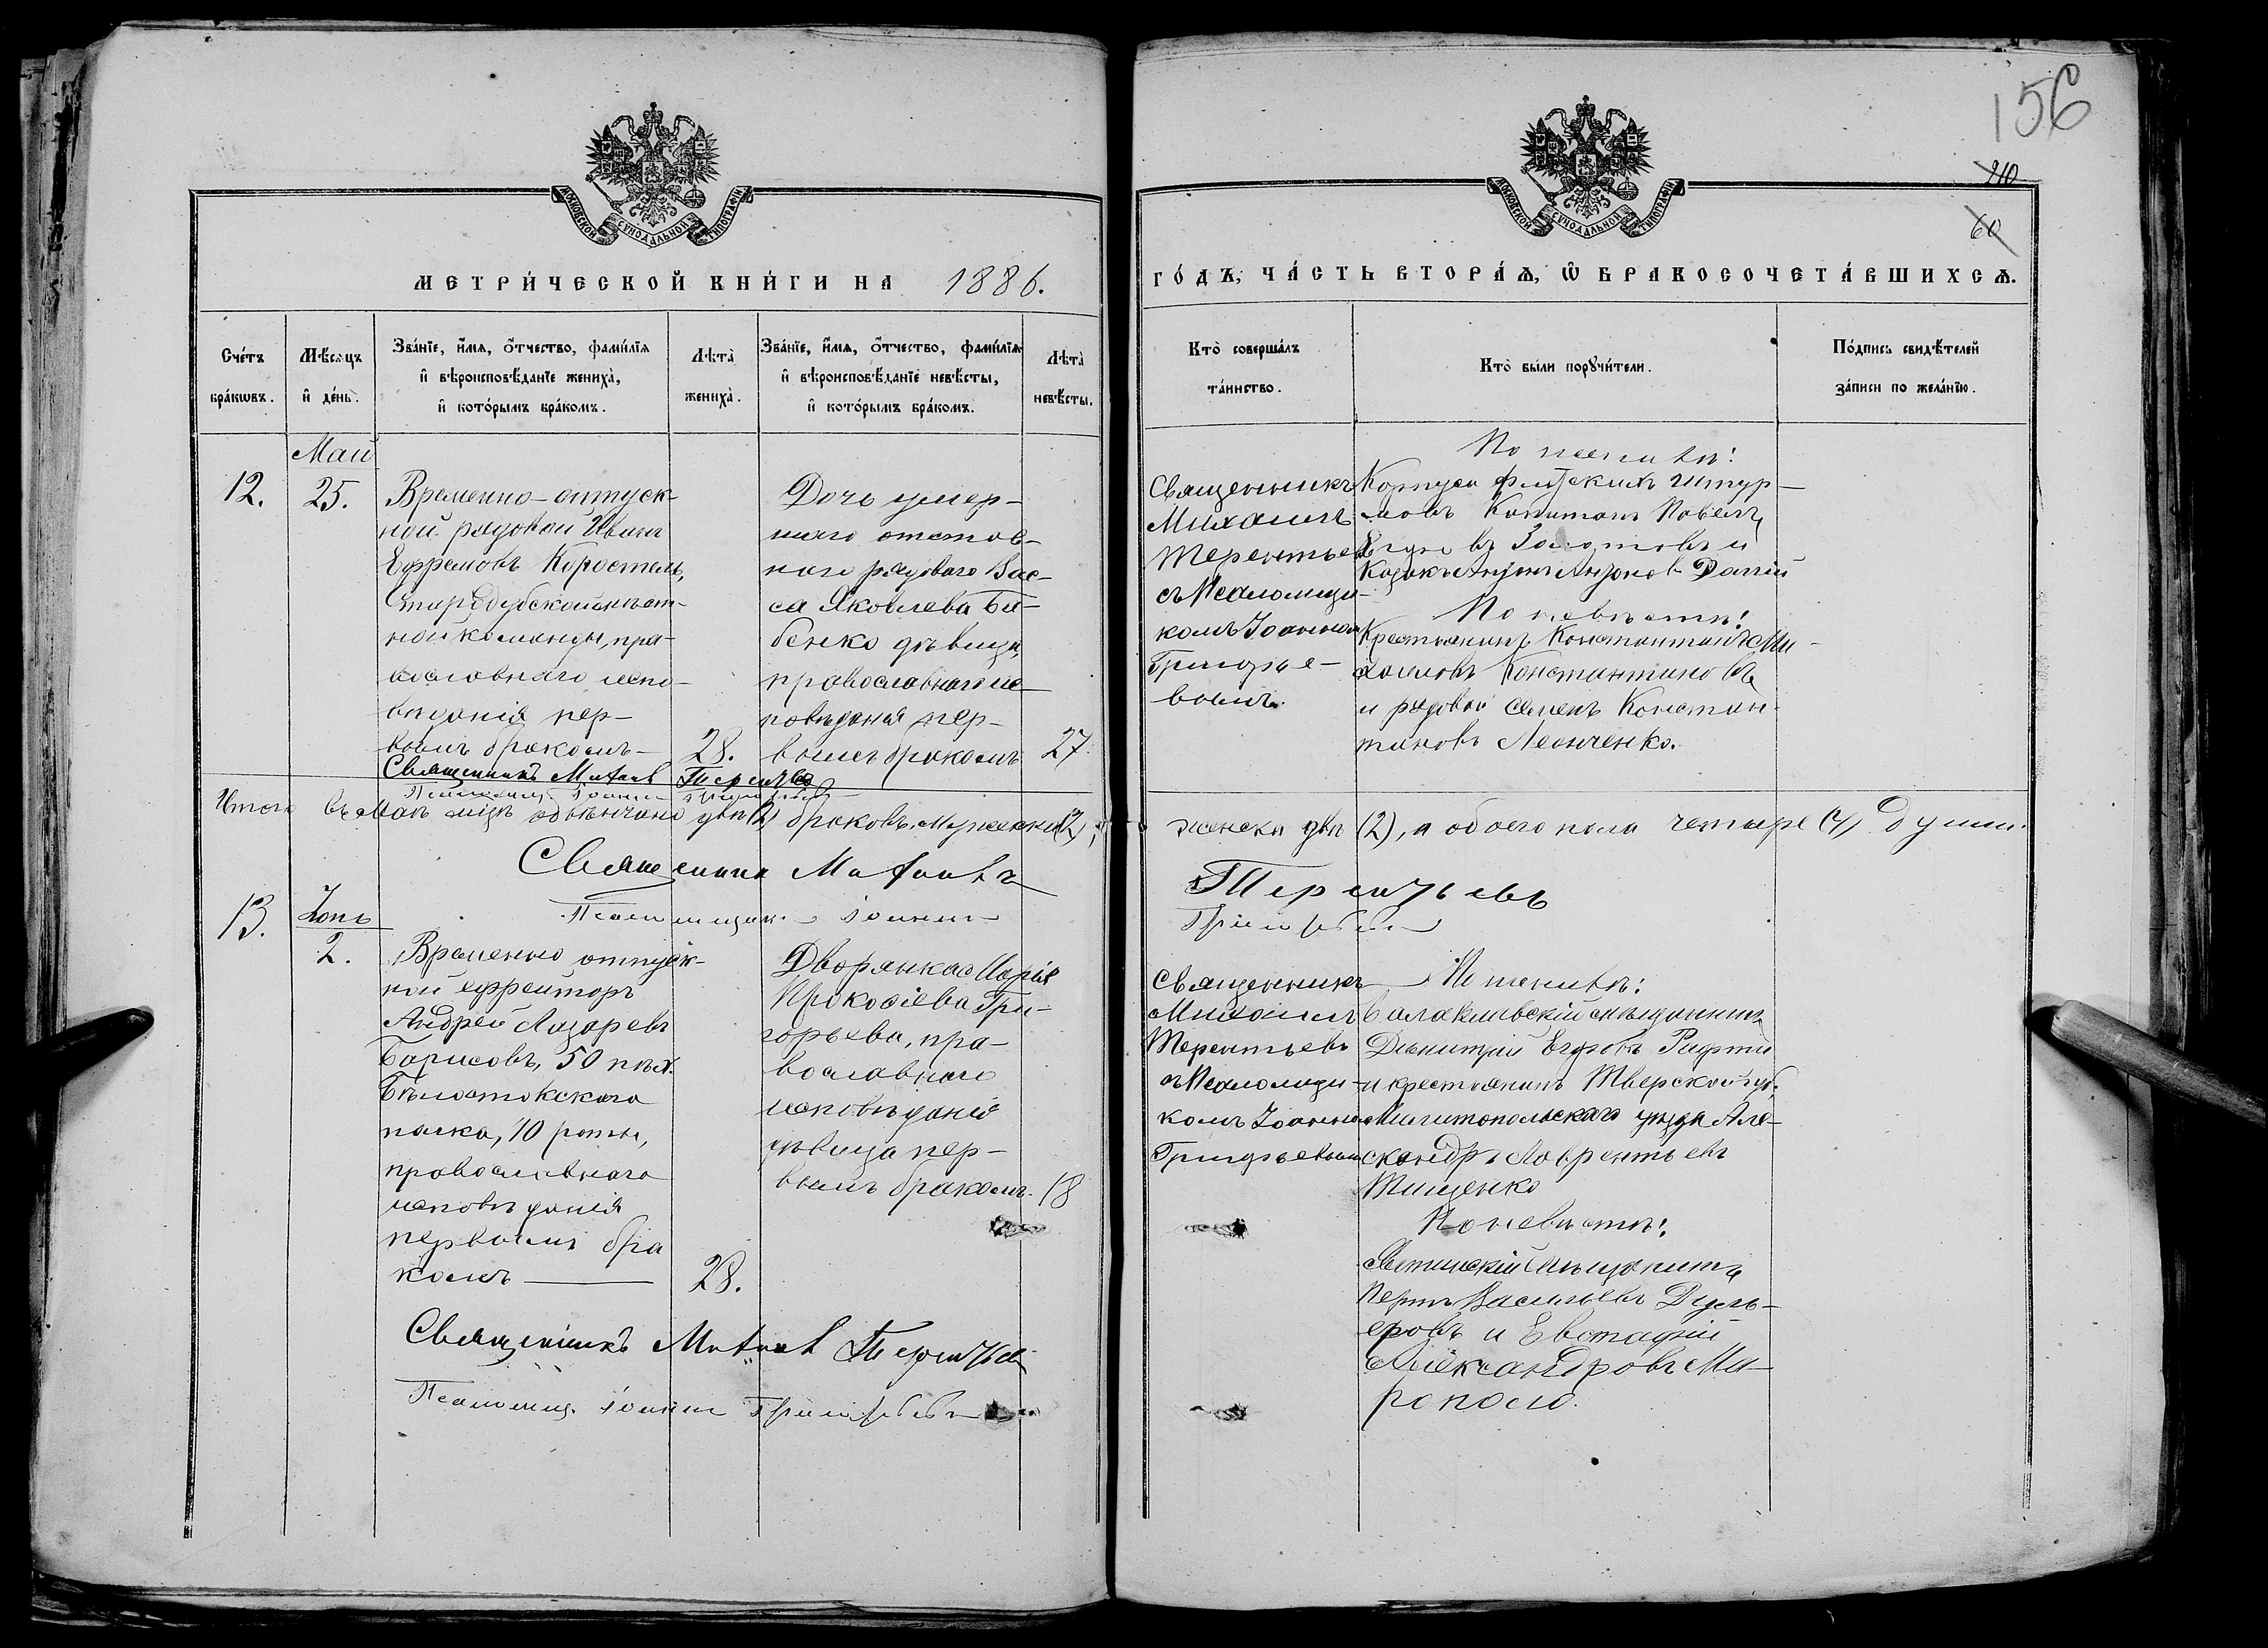 156
210
60
МОСКОВСКОЙ СѴНОДАЛЬНОЙ ТИПОГРАФІИ
МОСКОВСКОЙ СѴНОДАЛЬНОЙ ТИПОГРАФІИ
МЕТРИ́ЧЕСКОЙ КНИ́ГИ НА 1886.
ГО́ДЪ, ЧА́СТЬ ВТОРА́Ѧ, Ѡ БРАКОСОЧЕТА́ВШИХСѦ.
Сче́тъ бра́кѡвъ.
Мѣ́сѧцъ и҆ де́нь.
Зва́нїе, и҆́мѧ, ѻ҆́тчество, фами́лїѧ
и҆ вѣроисповѣ́данїе жениха̀,
и҆ кото́рымъ бра́комъ.
Лѣта̀ жениха̀.
Зва́нїе, и҆́мѧ, ѻ҆́тчество, фами́лїѧ
и҆ вѣроисповѣ́данїе невѣ́сты,
и҆ кото́рымъ бра́комъ.
Лѣта̀ невѣ́сты.
Кто̀ соверша́лъ та́инство.
Кто̀ бы́ли порꙋчи́тели.
По́дпись свидѣ́телей за́писи по жела́нїю.
Май
12.
25.
Временно-отпуск-
ной рядовой Иванъ
Ефремовъ Коростель,
Стародубской мѣст-
ной команды, пра-
вославнаго испо-
вѣданія пер-
вымъ бракомъ
28.
Дочь умер-
шаго отстав-
наго рядового Вас-
са Яковлева Ба-
бенко дѣвица,
православнаго ис-
повѣданія пер-
вымъ бракомъ
27.
Священникъ
Михаилъ
Терентьевъ
съ Псаломщи-
комъ Іоанномъ
Григорье-
вымъ.
По женихѣ:
Корпуса флотскихъ штур-
мановъ Капитанъ Павелъ
Егоровъ Золотовъ и
Козакъ Антонъ Антоновъ
По невѣстѣ:
Крестьянинъ Константинъ Ми-
хаиловъ Константиновъ
и рядовой Семенъ Констан-
тиновъ Леонченко.
Священникъ Михаилъ Терентьевъ
Псаломщикъ Іоаннъ Григорьевъ
Итого въ Маѣ мцѣ обвѣнчано два (2) браковъ. Мужески (2),
женска два (2), а обоего пола четыре (4) души.
Священникъ Михаилъ Терентьевъ
Псаломщикъ Іоаннъ Григорьевъ
13.
Іюнь
2.
Временно отпуск-
ной ефрейторъ
Андрей Лазаревъ
Борисовъ, 50 пѣх.
Бѣлостокскаго
полка, 10 роты,
православнаго
исповѣданія
первымъ бра
комъ
28.
Дворянка Марія
Прокофіева Гри-
горьева, пра-
вославнаго
исповѣданія
дѣвица пер-
вымъ бракомъ.
18
Священникъ
Михаилъ
Терентьевъ
съ Псаломщи-
комъ Іоанномъ
Григорьевымъ
По женихѣ:
Балаклавскій мѣщанинъ
Дмитрій Егоровъ
и крестьянинъ Тверской губ.
Мелитопольскаго уѣзда Але-
ксандръ Лаврентьевъ
Тищенко
По невѣстѣ:
мѣщанинъ
Петръ Васильевъ
и Евстафій
Александровъ Ма-
Священникъ Михаилъ Терентьевъ
Псаломщ. Іоаннъ Григорьевъ